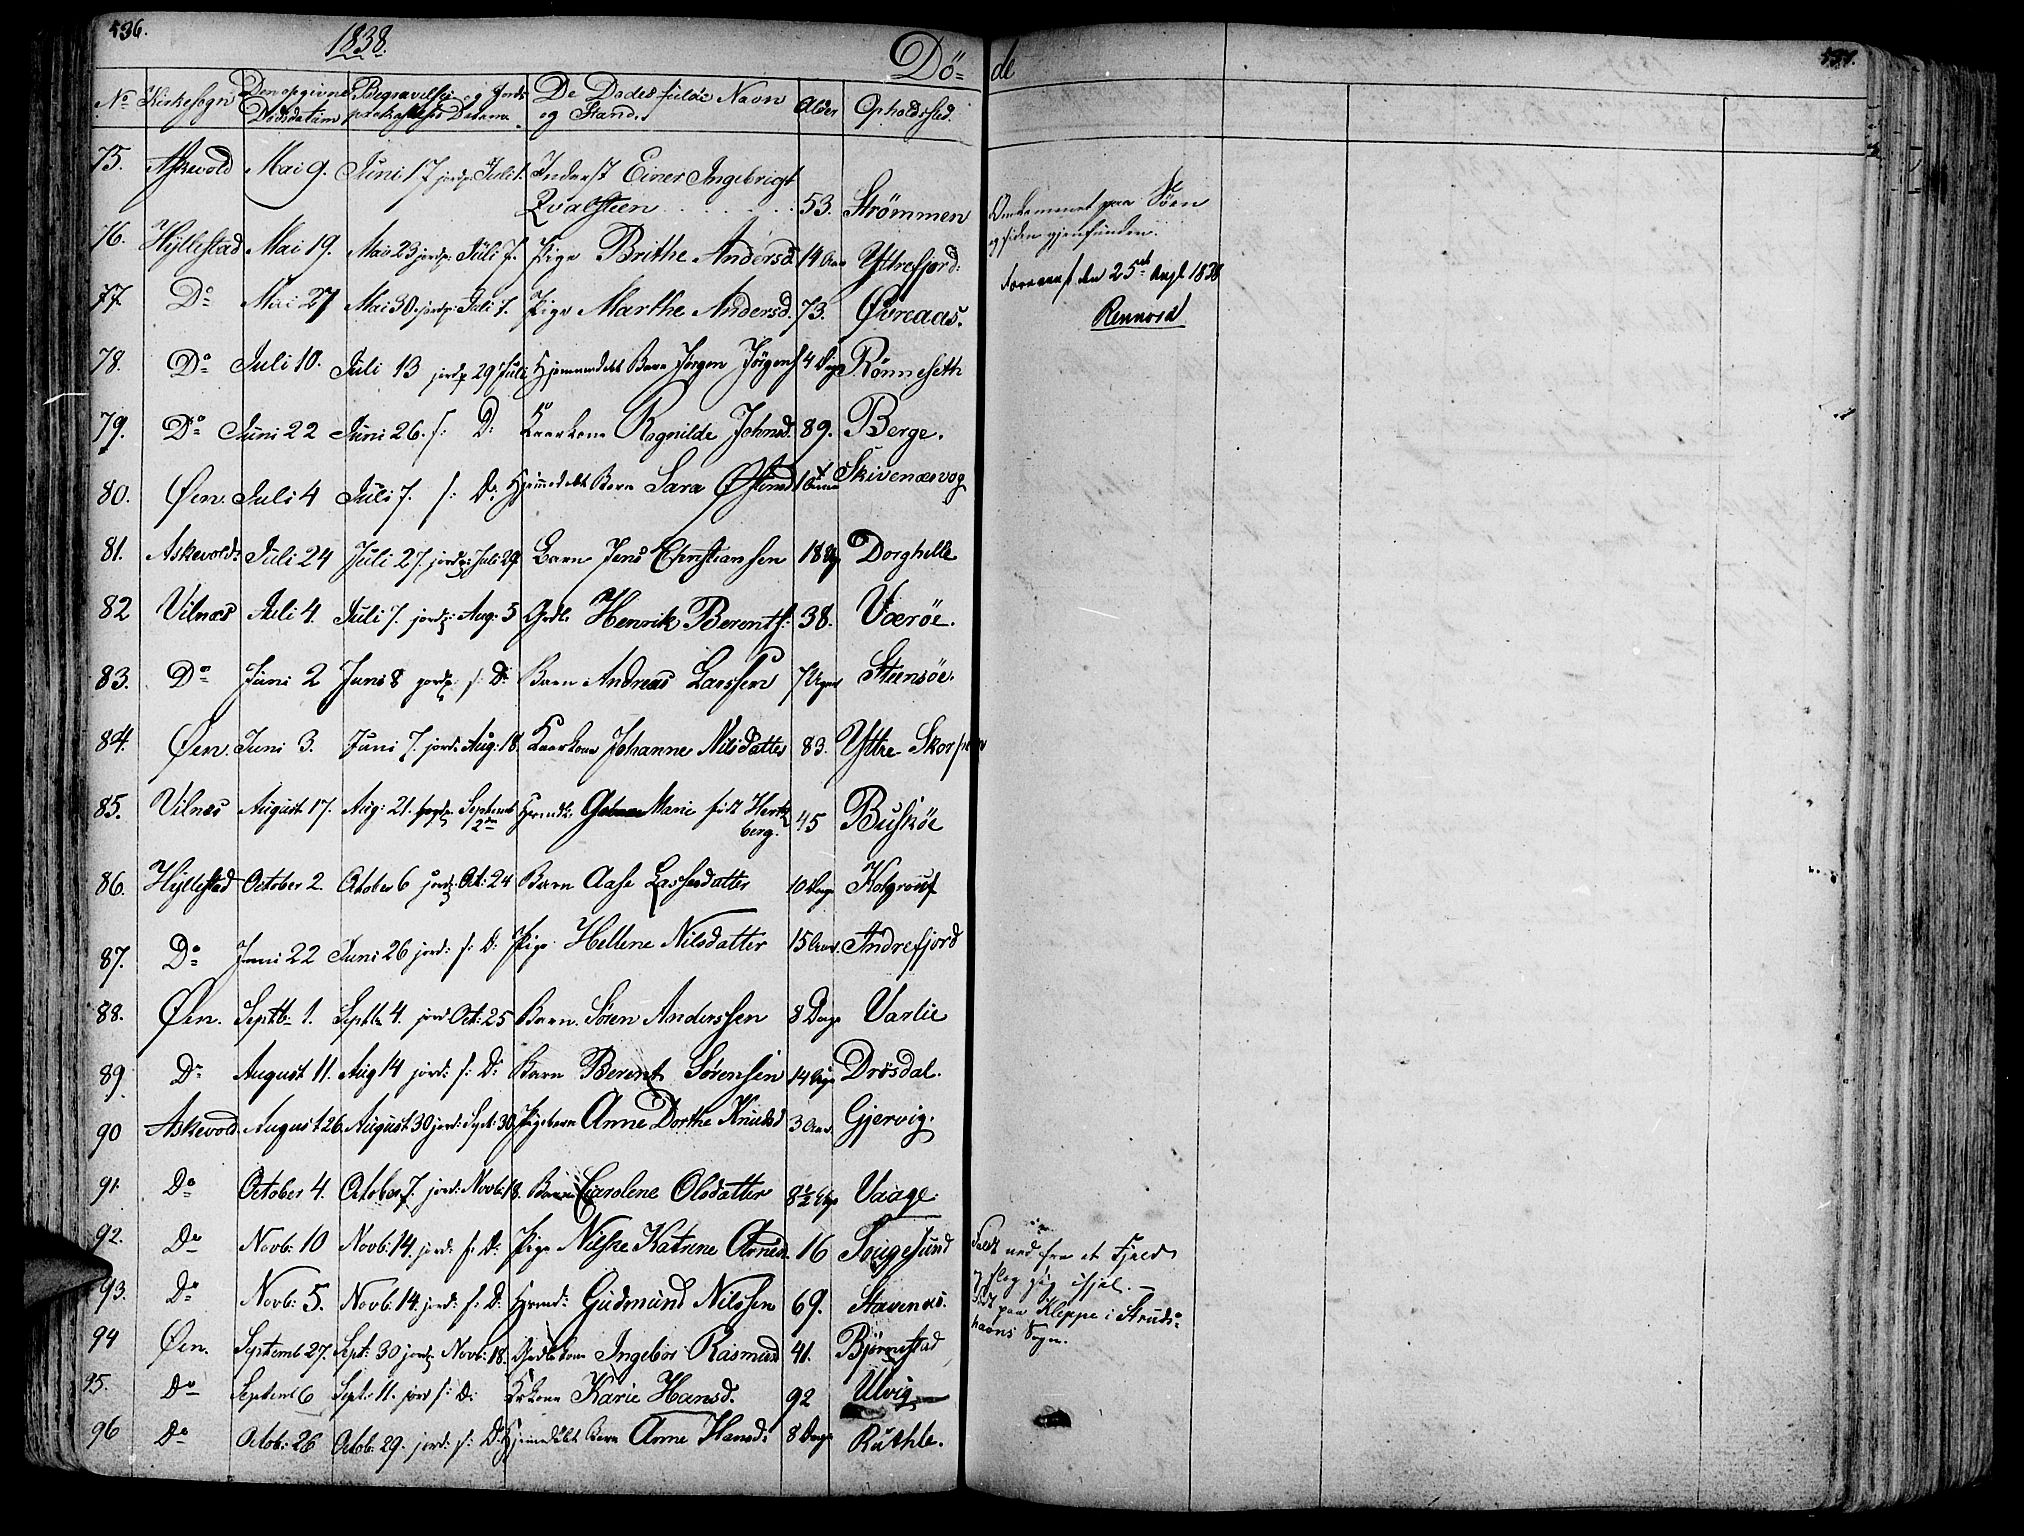 436.
1838.
Dö= de
437.
No Kirkesogn Den opgivne Dødsdatum Begravelse og Jords- De Dødes fulde Navn og Stand. Alder Opholdssted.
75. Askevold Mai 9. Juni 17 jordp. Juli 1. Inderst Einer Ingebrigt
Qvalsteen 53. Strömmen Omkommet paa Søen
og siden gjenfunden.
76. Hyllestad Mai 19. Mai 23 jordp: Juli 7. Pige Brithe Andersd. 14 Aar Yttrefjord.
den 25 1838
77. Do Mai 27 Mai 30 jordp: Juli 7. Pige Marthe Andersd. 73. Øvreaas.
Rennord
78. Do Juli 10. Juli 13 jordp 29 Juli Hjemmedøbt Barn Jörgen Jörgens 4 Dage Rönneseth
79. Do Juni 22 Juni 26. s: D: Kaarkone Ragnilde Johnsd. 89. Berge.
80. Øen. Juli 4 Juli 7. s: D: Hjemmedøbt Barn Sara 1 Skivenæsvog
81. Askevold: Juli 24 Juli 27. jordp: Juli 29. Barn Jens Christiansen 18 Dorghelle
82 Vilnæs Juli 4. Juli 7. jordp: Aug: 5 Henrik Berents: 38. Væröe.
83. Do Juni 2 Juni 8 jordp: s: D: Barn Andreas Larssen 7 Uger Steensöe.
84. Øen. Juni 3. Juni 7. jord: Aug: 18. Kaarkone Johanne Nilsdatter 83. Yttre Skorpen
85. Vilnæs August 17. Aug: 21. jordp: Septemb 2den Marie född Hertz
berg. 45 Buskøe
86. Hyllestad October 2. Octobr 6 jordp: Oct: 24 Barn Aase Lassesdatter 10 Dage Kolgrouf
87. Do Juni 22 Juni 26 jord: s: D: Pige Hellene Nilsdatter 15 Aar. Indrefjord
88. Øen. Septb. 1. Septb. 4. jord Oct: 25 Barn. Sören Anderssen 8 Dage Varlie
89. Do August 11. Aug 14 jord: s: D: Barn Berent Sörensen 14 Drösdal.
90 Askevold. August 26. August 30 jord: Sept: 30. Pigebarn Anne Dorthe Knudsd 3 Aar. Gjervig.
91. Do October 4. October 7. jord: Novb: 18. Barn Carolene Olsdatter 8½ Vaage.
92. Do Novb: 10 Novb: 14. jord: s: D: Pige Nilske Katrene 16 Sougesund Faldt ned fra et Fjeld
og slog sig ihjel.
93. Do Novb: 5. Novb: 14. jord: s: D: Gudmund Nilssen 69. Stavenæs. Født paa Kleppe i Strands-
havns Sogn.
94 Øen. Septemb 27. Sept: 30 jordp Novb: 18. Ingebor Rasmusd 41. Björnestad
95. Do Septemb 6 Sept: 11. jord s: D: Karie Hansd. 92 Ulvig
96 Do Octob: 26 Octob: 29. jord: s: D: Hjemdöbt Barn Anne Hansd: 8 Dage Ruthle.